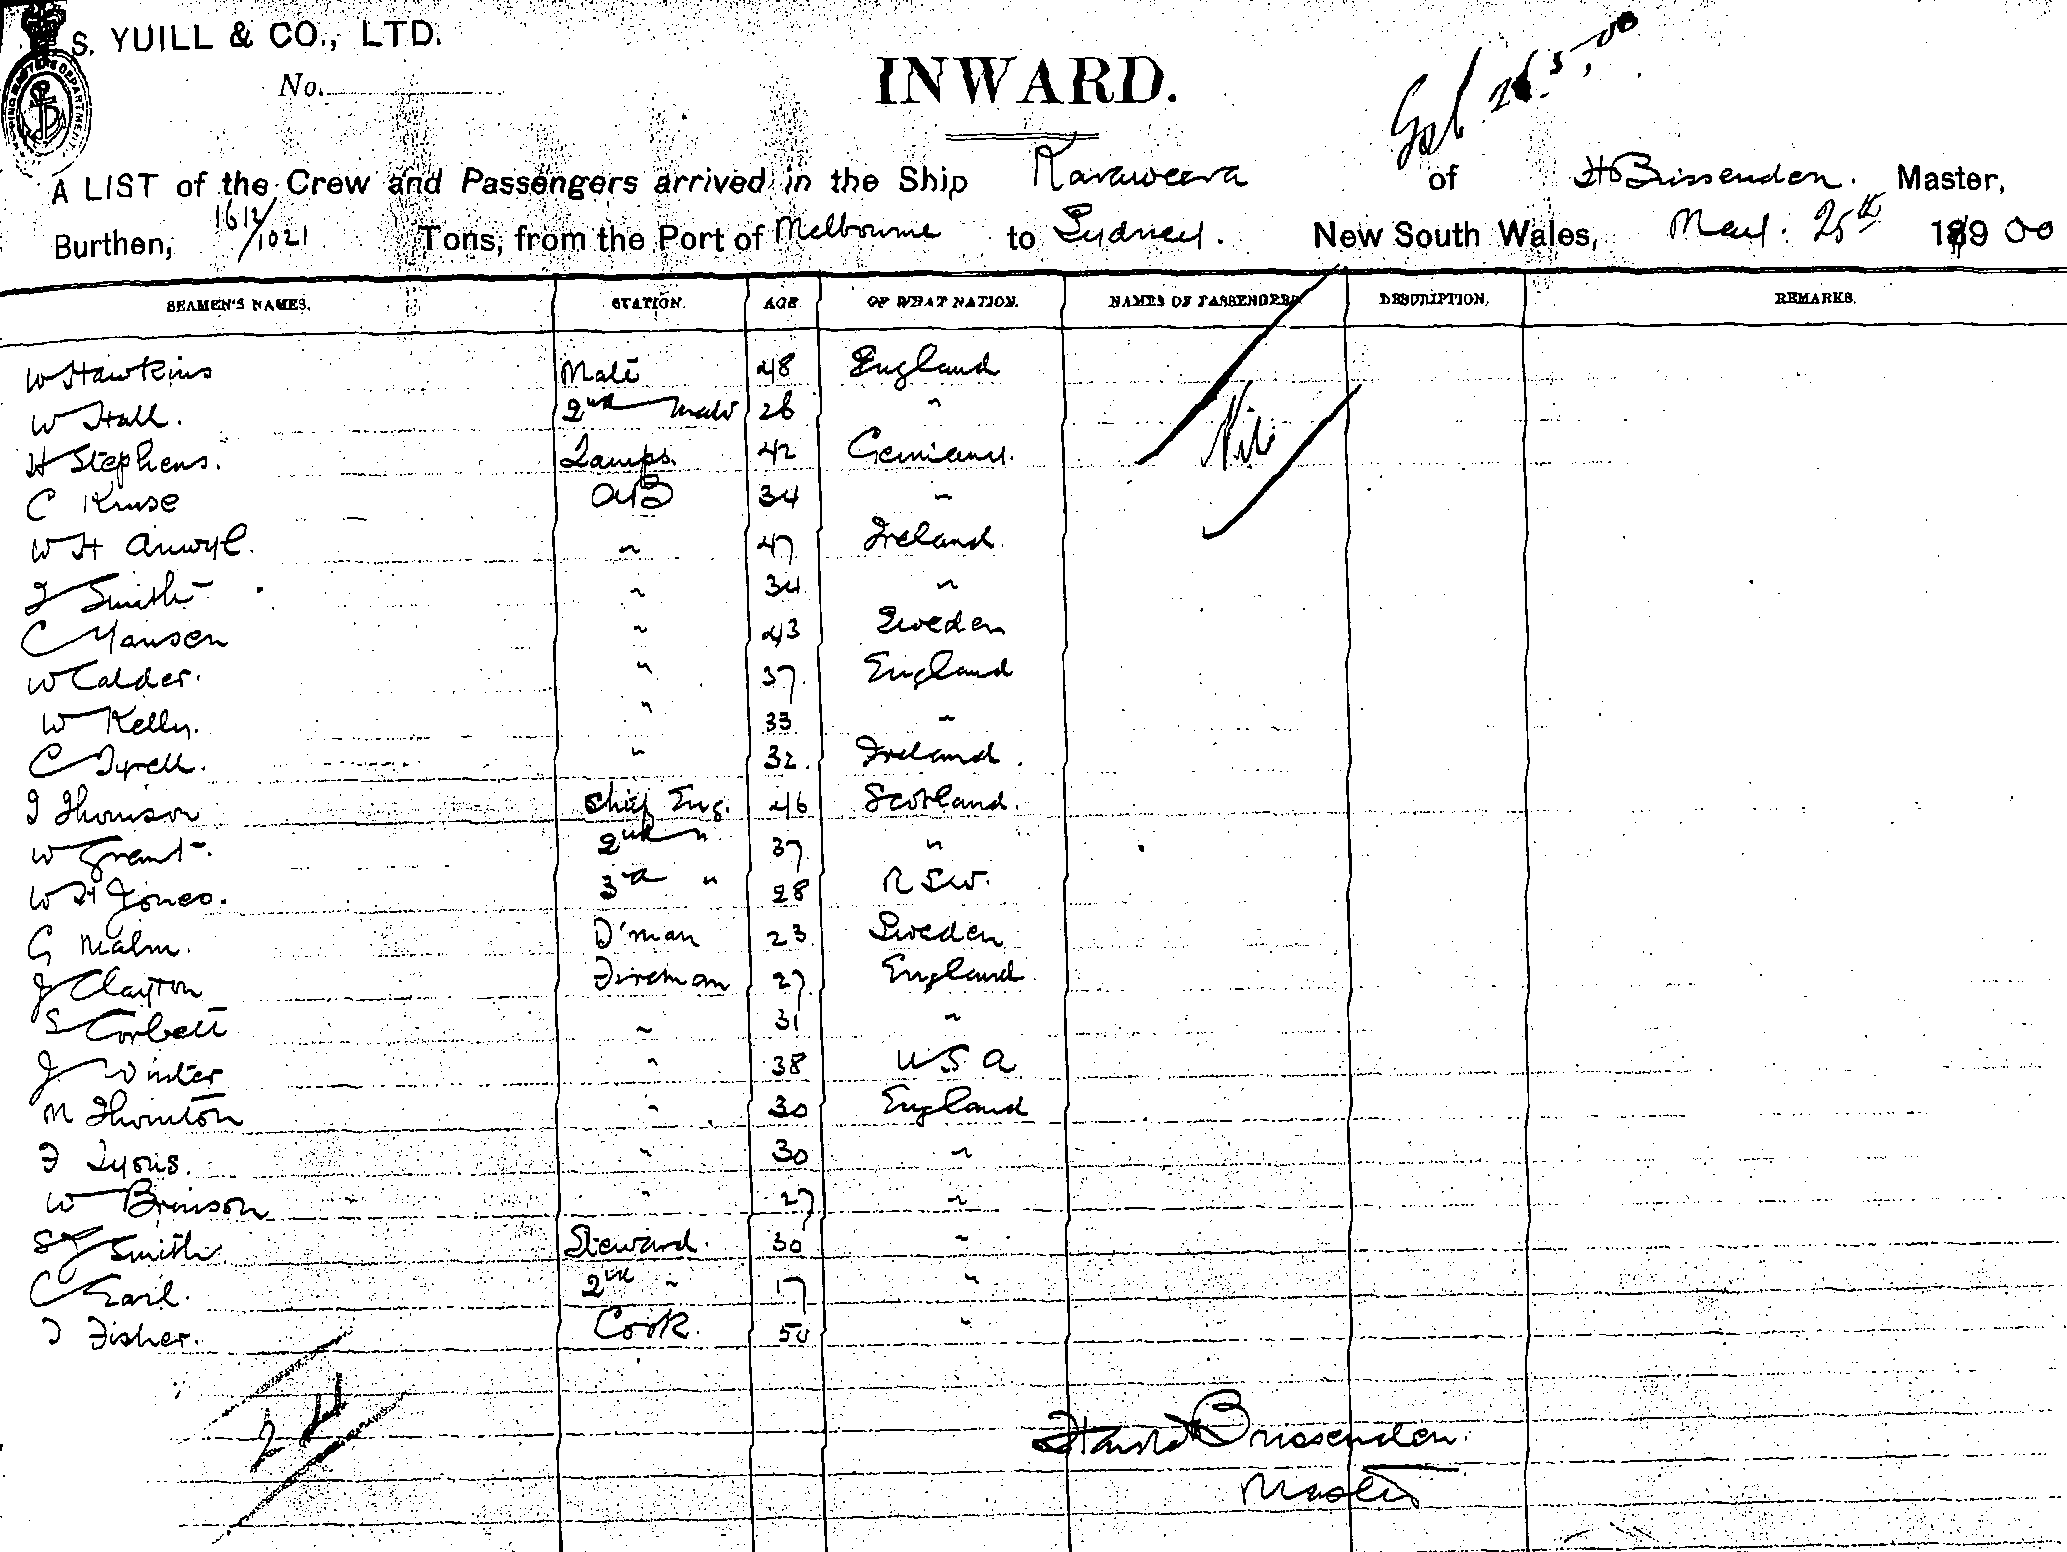 S. YUILL & CO., LTD.
No.
INWARD.
26.5.00
A LIST of the Crew and Passengers arrived in the Ship Karaweera of H Brissenden. Master,
Burthen, 1612/1021 Tons, from the Port of Melbourne to Sydney. New South Wales, May. 25th 1900
SEAMEN'S NAMES. STATION. AGE OF WHAT NATION. NAMES OF PASSENGERS. DESCRIPTION. REMARKS.
W Hawkins Mate 48 England
W Hall. 2nd Mate 26 " Nil
H Stephens. Lamps. 42 Germany.
C Kruse AB 34 "
W H Anwyl. " 47 Ireland
J Smith " 34 "
C Hansen " 43 Sweden
W Calder. " 37. England
W Kelly. " 33 "
C Tyrell. " 32. Ireland.
J Thomson Chief Eng. 46 Scotland.
W Grant. 2nd " 37 "
W H Jones. 3rd " 28 NSW.
G Malm. D'man 23 Sweden
J Clayton Fireman 27 England
S Corbett " 31 "
J Winter " 38 USA
M Thornton " 30 England
F Lyons. " 30 "
W Brinson " 27 "
S J Smith. Steward. 30 "
C Earl. 2nd " 17 "
J Fisher. Cook. 50 "
24
Harold Brissenden.
Master